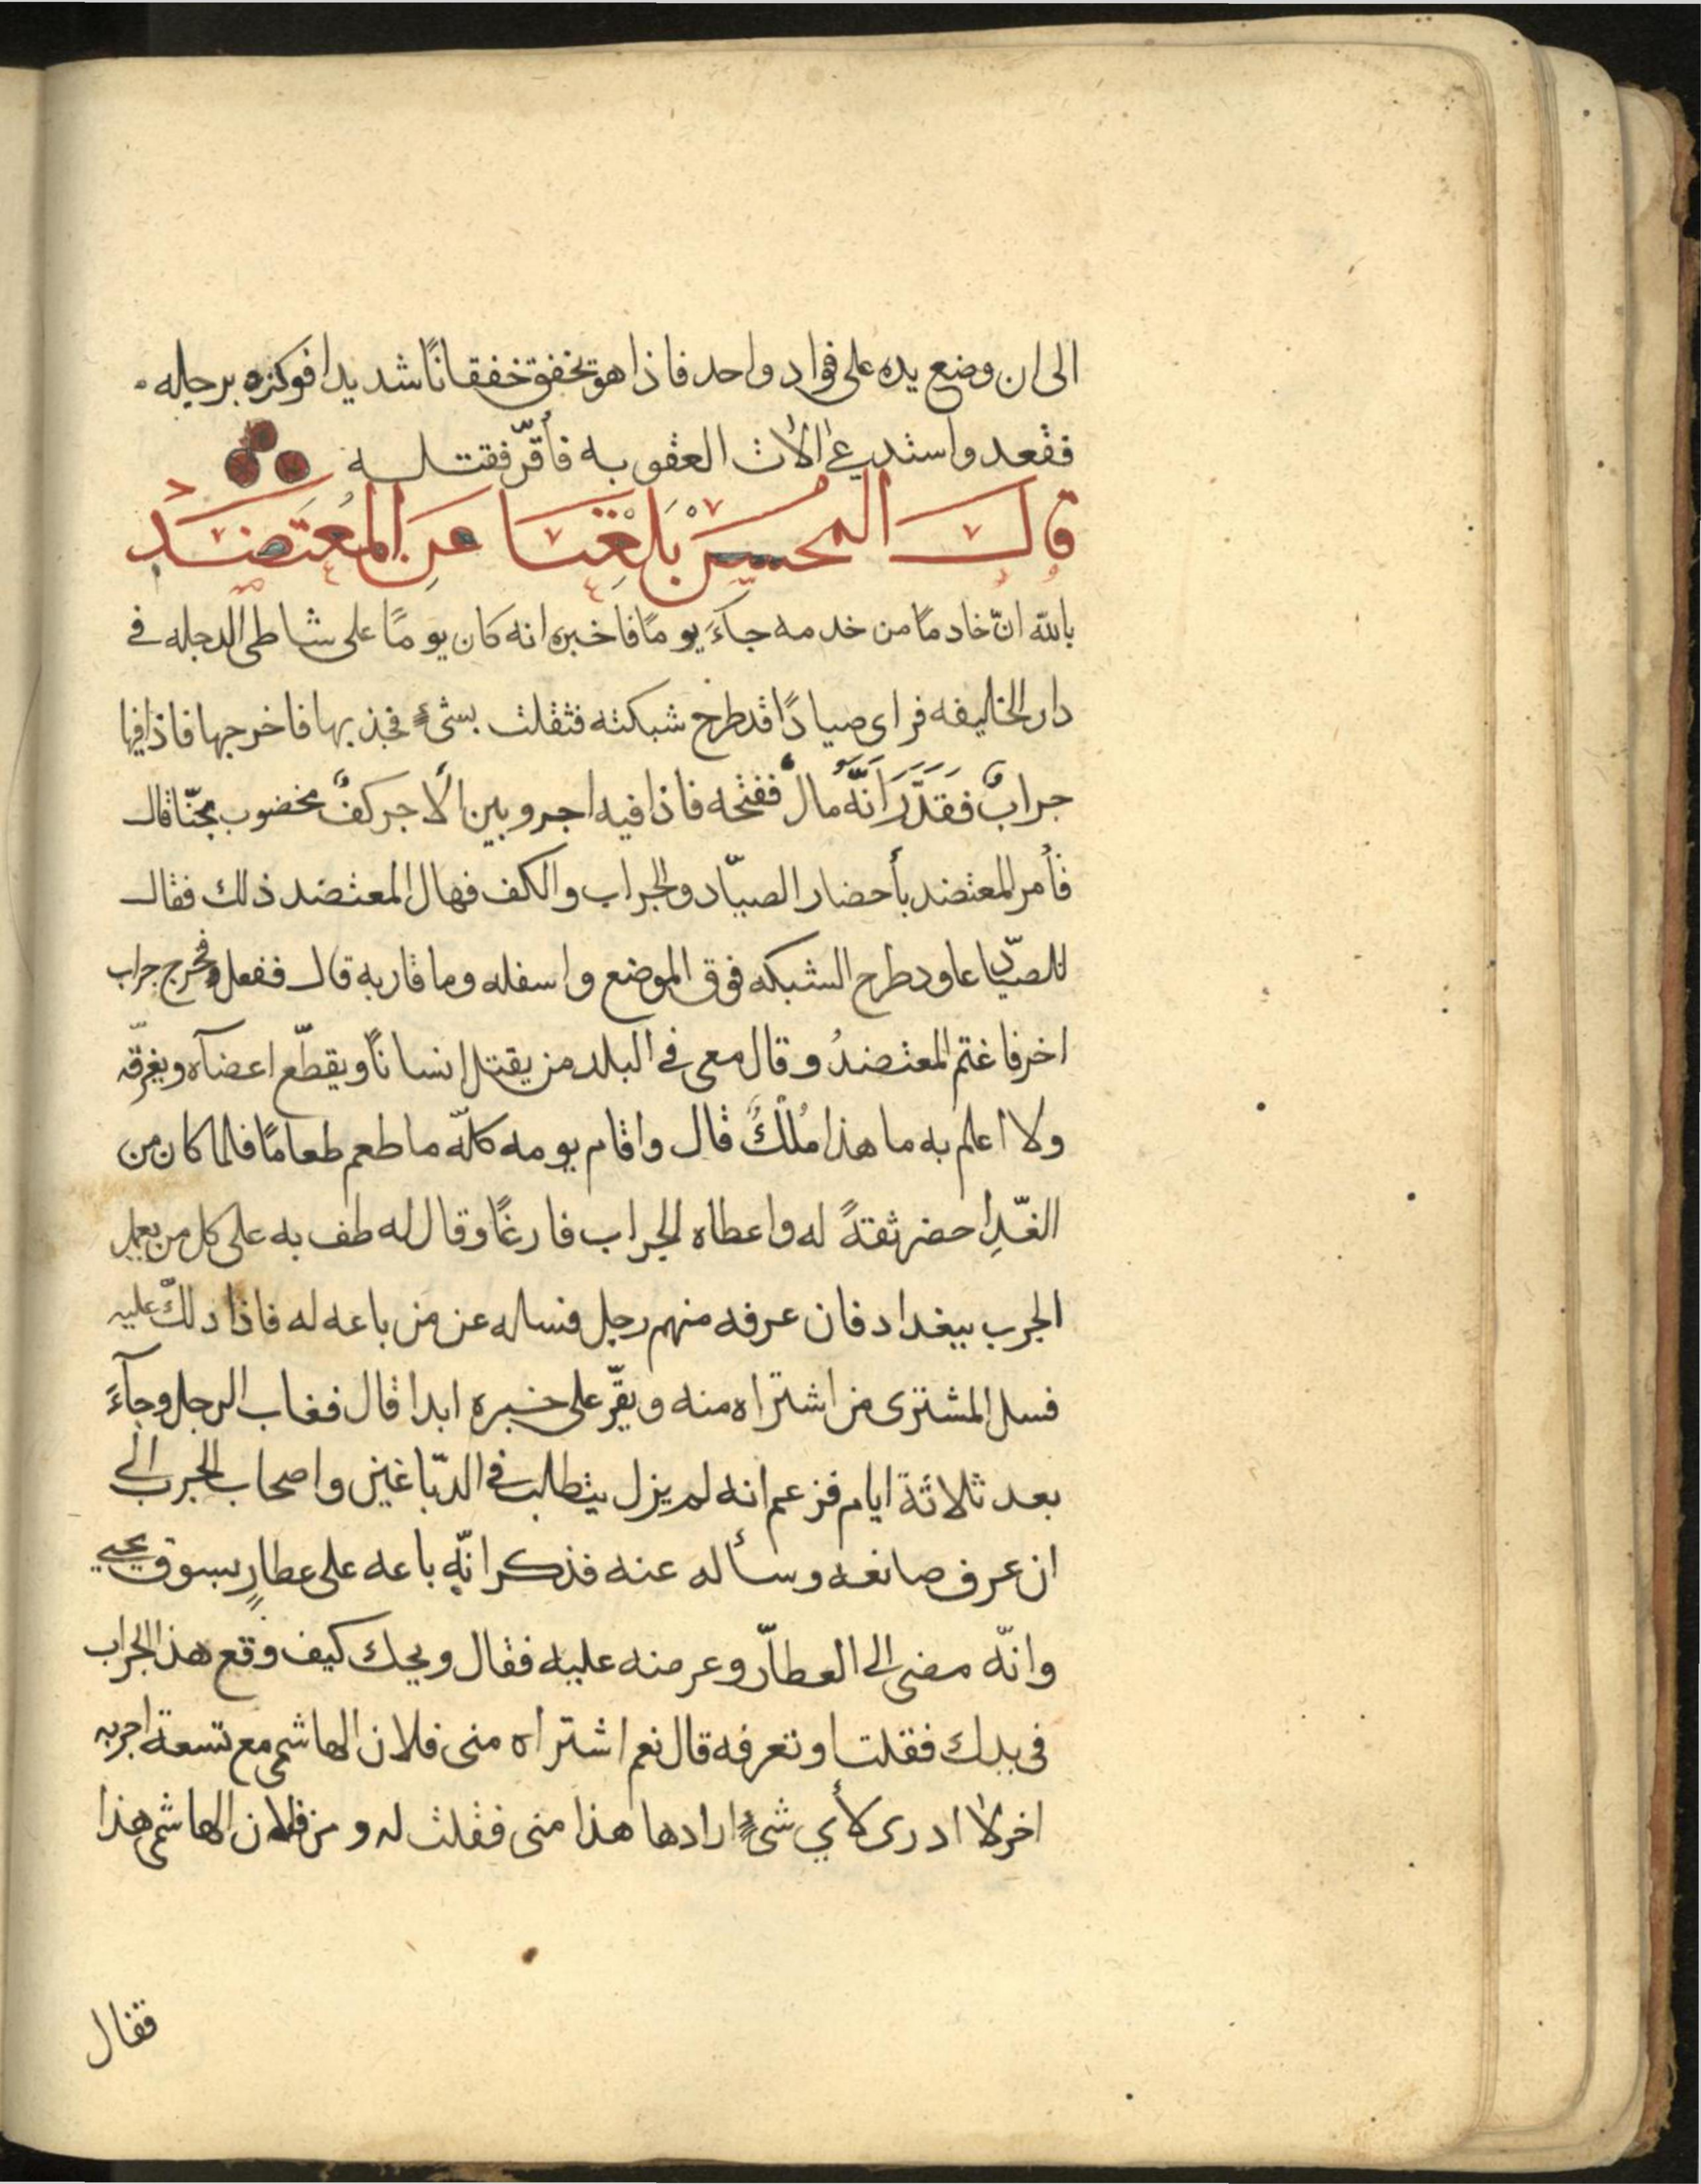 الى ان وضع يده على فواد واحد فاذا هو تخفق خفقانًا شديدا فوكزه برجله
فقعد واستدعى الات العقوبه فأقرّ فقتله
قال المحسن بلغنا عن المعتضد
بالله انّ خادمًا من خدمه جآءَ يومًا فاخبره انه كان يومًا على شاطى الدجله في
دار الخليفه فراى صيادًا قد طرح شبكته فثقلت بشىءٍ فجذبها فاخرجها فاذا فيها
جرابٌ فقَدَّرَ اَنَّهُ مالٌ ففتحه فاذا فيه اجر وبين الآجر كفٌ مخضوب بحنّا قال
فأمر المعتضد بأحضار الصيّاد والجراب والكف فهال المعتضد ذلك فقال
للصيّاد عاود طرح الشبكه فوق الموضع واسفله وما قاربه قال ففعل فخرج جراب
اخر فاغتم المعتضدُ وقال معى في البلد من يقتل انسانًا ويقطّع اعضآه ويغرقّه
ولا اعلم به ما هذا مُلْكٌ قال واقام يومه كلّه ما طعم طعامًا فلما كان من
الغّدِ احضر ثقةً له واعطاه الجراب فارغًا وقال له طف به على كل من يعمل
الجرب ببغداد فان عرفه منهم رجل فساله عن من باعه له فاذا دلّك عليه
فسل المشترى من اشتراه منه ويقرّ على خبره ابدا قال فغاب الرجل وجآءَ
بعد ثلاثة ايام فزعم انه لم يزل يتطلب في الدبّاغين واصحاب الجرب الى
ان عرف صانعه وسأله عنه فذكر انّه باعه على عطارٍ بسوق يحيى
وانّه مضى الى العطّار وعرضه عليه فقال ويحك كيف وقع هذا الجراب
فى يدك فقلت او تعرفه قال نعم اشتراه منى فلان الهاشمى مع تسعة اجربه
اخر لا ادرى لأي شىءٍ ارادها هذا منى فقلت له ومن فلان الهاشمى هذا
فقال